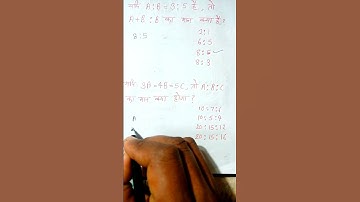 यदि A:B = 3:5 है, तो
A+B : B का मान क्या है?
8:5
2:1
6:5
8:5
8:3
यदि 3A=4B=5C, तो A:B:C
का मान क्या होगा?
10:7:6
10:5:4
20:15:12
20:15:16
A